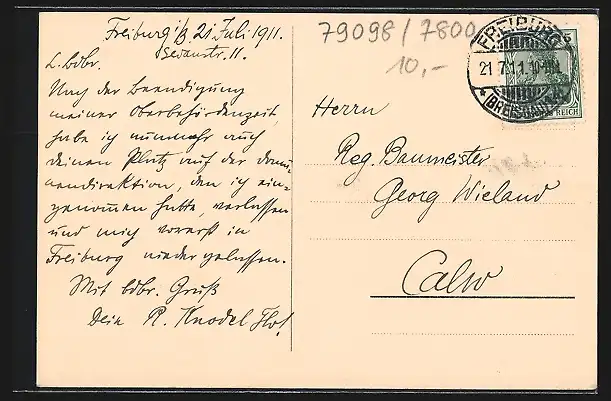 Freiburg i/B 21 Juli 1911.
Sedanstr. 11.
L. Bdbr.
Nach der Beendigung
meiner Oberbehördenzeit
habe ich nunmehr auch
deinen Platz auf der Domä-
nendirektion, den ich ein-
genommen hatte, verlassen
und mich vorerst in
Freiburg niedergelassen.
Mit bdbr. Gruß
Dein R. Knodel
79098 / 7800
10,-
FREIBURG
21.7.11. 10-11
(BREISGAU)
5
REICH
Herrn
Reg. Baumeister
Georg Wieland
Calw